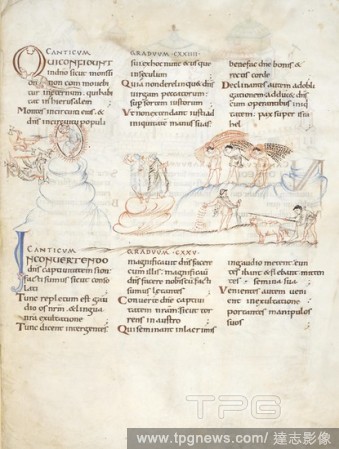 CANTICUM
QUICONFIDUNT
indno sicut monssi
on non com mouebi
tur ineternum quihabi
tat inhierusalem
Montes incircuitu eius &
dns incircuitu populi
GRADUUM · CXXIIII
sui exhoc nunc & usque
inseculum
Quia nonderelinqu& dns
uirgam peccatorum
sup sortem iustorum
Ut nonextendant iusti ad
iniquitatem manus suas
benefac dne bonis &
rectis corde
Declinantes autem adobli
gationem adduc& dns
cum operantibus iniq
tatem pax super isra
hel
CANTICUM
INCONUERTENDO
dns captiuitatem sion
facti sumus sicut conso
lati
Tunc repletum est gau
dio os nrm & lingua
nra exultatione
Tunc dicent intergentes
GRADUUM · CXXV
magnificauit dns facere
cum illis magnificauit
dns facere nobiscum facti
sumus letantes
Conuerte dne captiui
tatem nram sicut tor
rens in austro
Quiseminant inlacrimis
ingaudio metent Eun
tes ibant & flebant mitten
tes semina sua
Uenientes autem ueni
ent inexultatione
portantes manipulos
suos
TPG
www.tpgnews.com/達志影像